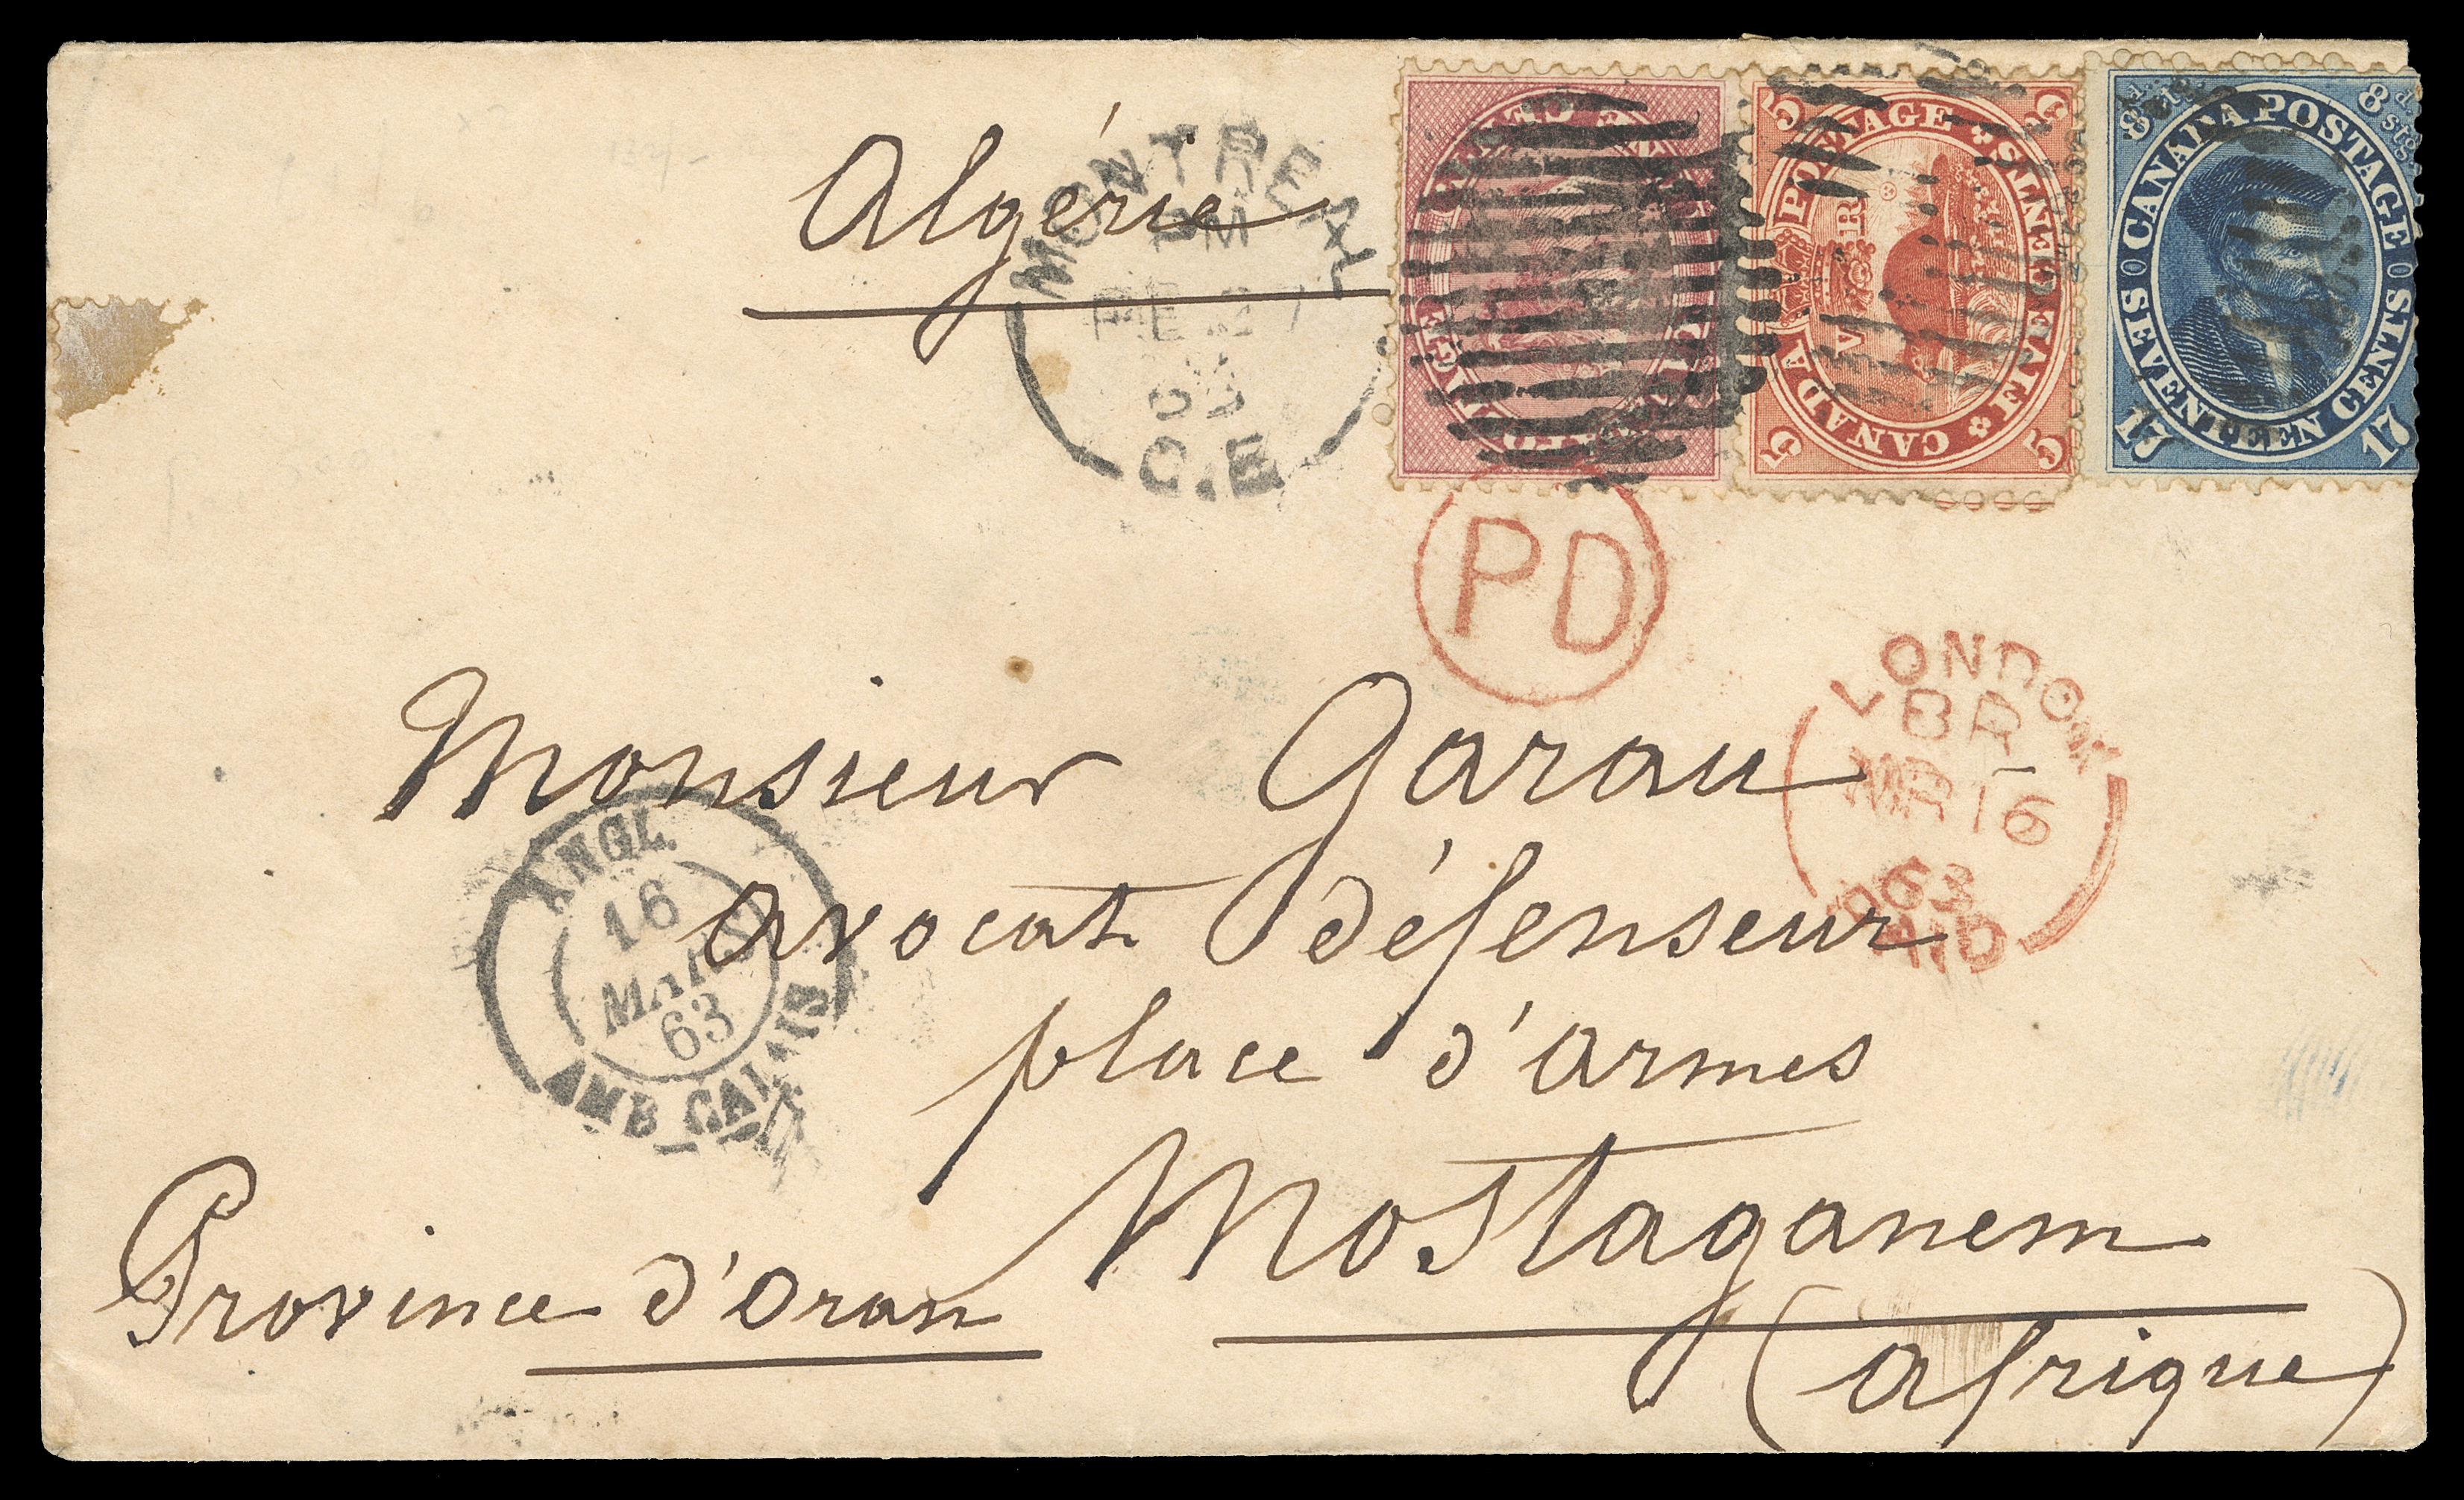 Algérie
MONTREAL
PM
FE 27
63
C.E
CANADA POSTAGE
FIVE CENTS
5 5 5 5
V R
CANADA POSTAGE
SEVENTEEN CENTS
8 stg 8 stg
17 17
PD
LONDON
BR
MR 16
63
PAID
Monsieur Garau
avocat défenseur
place d'armes
Mostaganem
Province d'Oran
(afrique)
ANGL.
16
MARS
63
AMB. CALAIS